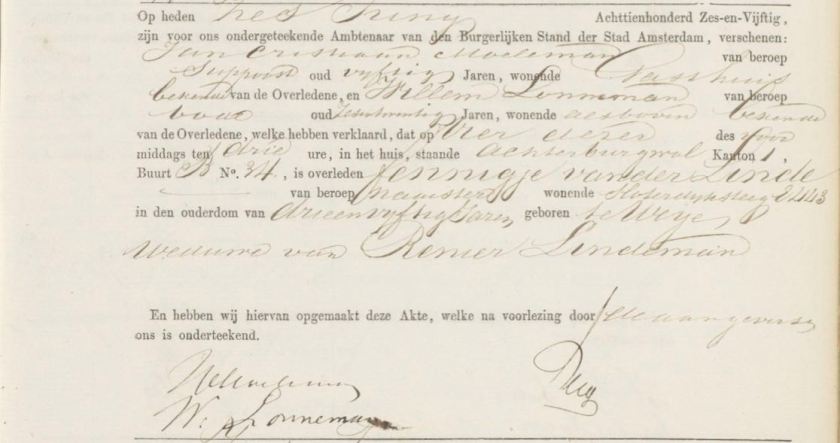 Op heden Zes Juny Achttienhonderd Zes-en-Vijftig,
zijn voor ons ondergeteekende Ambtenaar van den Burgerlijken Stand der Stad Amsterdam, verschenen:
Jan Moeleman van beroep
Suppoost oud vyftig Jaren, wonende Gasthuis
bekende van de Overledene, en Willem Lonneman van beroep
bode oud Jaren, wonende als boven bekende
van de Overledene, welke hebben verklaard, dat op Vier dezer des voor
middags ten drie ure, in het huis, staande Achterburgwal Kanton 1,
Buurt B No. 34, is overleden Jennigje van der Linde
van beroep naaister wonende
in den ouderdom van drieenvyftig Jaren, geboren te Weye,
Weduwe van Renier Lindeman
En hebben wij hiervan opgemaakt deze Akte, welke na voorlezing door de aangevers
ons is onderteekend.
W. Lonneman